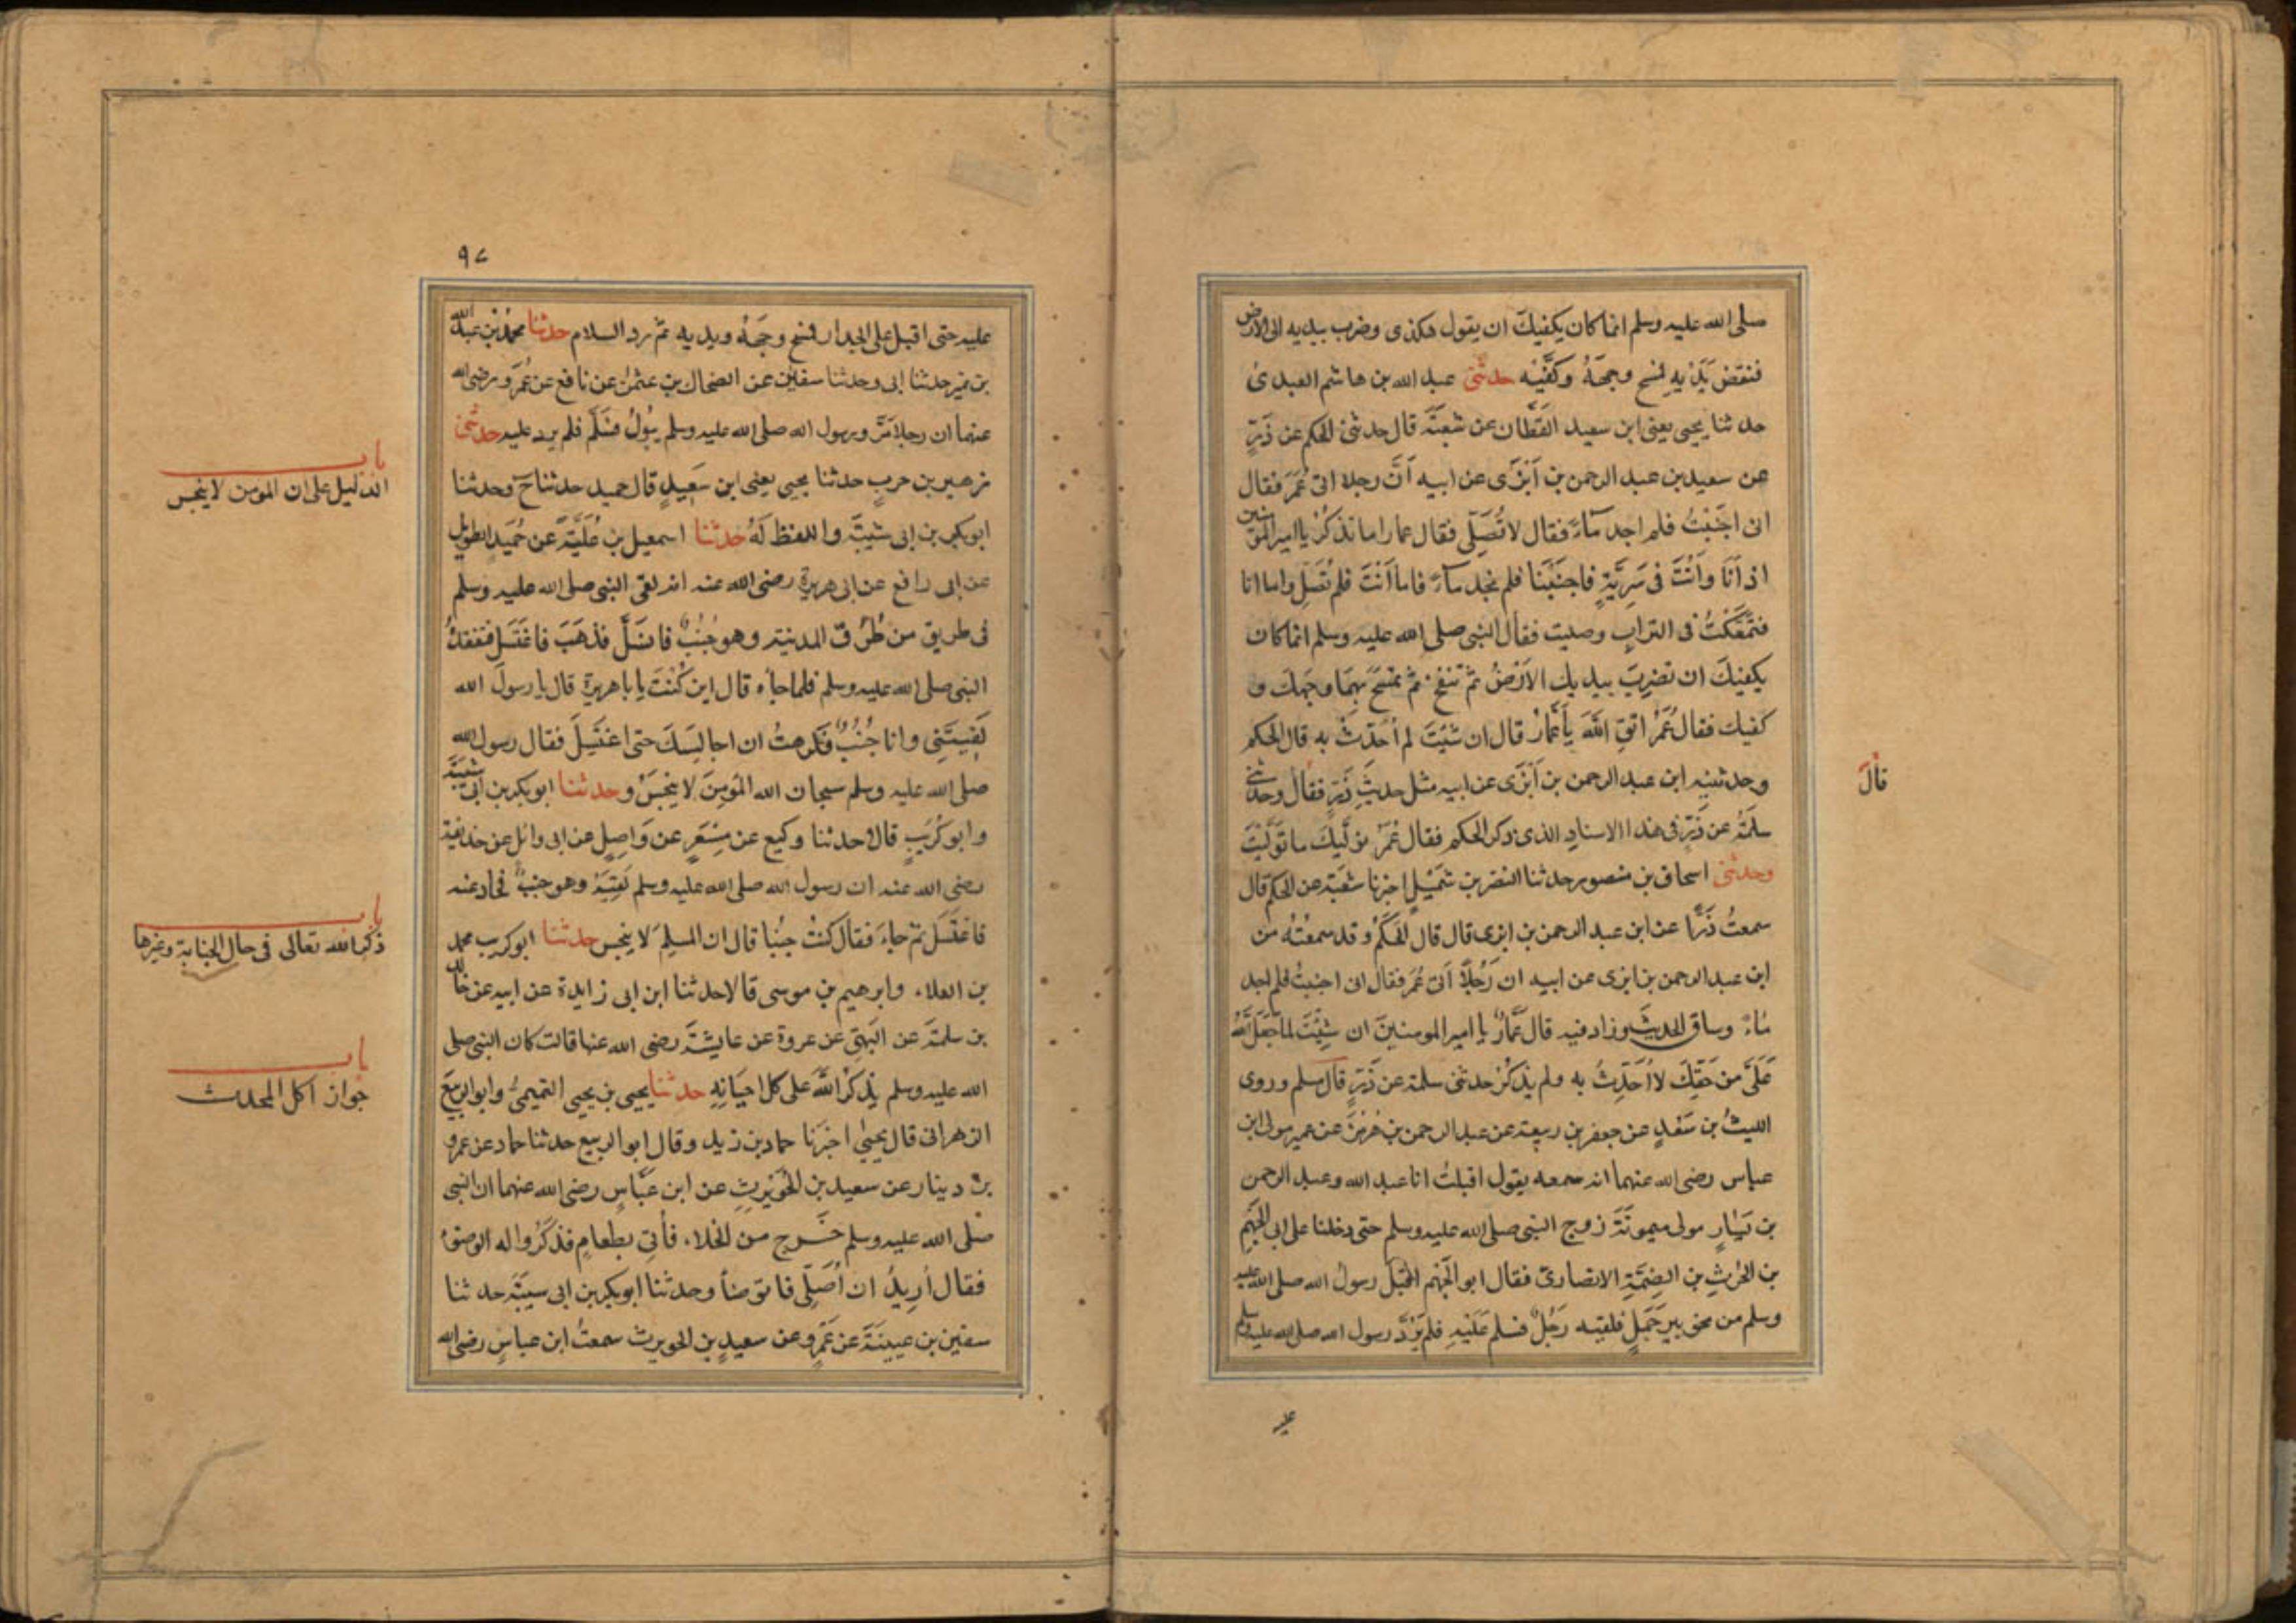 صلى الله عليه وسلم انما كان يكفيك ان يقول هكذى وضرب بيديه الى الارض
فنفض يَدَيْهِ فمسح وجهَهُ وكَفَّيْه حدثنى عبد الله بن هاشم العبدى
حدثنا يحيى يعنى ابن سعيد القَطَّان عن شعبَةَ قال حدثنى الحكم عن ذَرٍّ
عن سعيد بن عبد الرحمن بن اَبْزَى عن ابيه اَنَّ رجلا اتى عُمَرَ فقال
انى اجنَبْتُ فلم اجد مَاءً فقال لا تُصَلِّى فقال عمار اما تذكُرُ يا امير المؤمنين
اذ اَنَا وَاَنْتَ فى سَرِيَّةٍ فاجنَبْنَا فلم نجد ماءً فاما اَنْتَ فلم تُصَلِّ واما انا
فتَمَعَّكْتُ فى الترابِ وصليت فقال النبى صلى الله عليه وسلم انما كان
يكفيكَ ان تضربَ بيديك الارضَ ثم تنفخ ثم تمسَحَ بِهِمَا وجهك و
كفيك فقال عُمَرُ اتقِ اللهَ يا عَمَّارُ قال ان شئتَ لم اُحَدِّثْ به قال الحكم
وحدثنيه ابن عبد الرحمن بن اَبْزَى عن ابيه مثل حديثِ ذَرٍّ فقال وحدثنى
قَالَ
سلمَةُ عن ذَرٍّ فى هذا الاسنادِ الذى ذكر الحكم فقال عُمَرُ نولّيكَ ما تَوَلَّيْتَ
وحدثنى اسحاق بن منصور حدثنا النضر بن شُمَيْلٍ اخبرنا شعبَةُ عن الحكم قال
سمعتُ ذَرًّا عن ابن عبد الرحمن بن ابزى قال قال الحَكَمُ وقد سمعْتُهُ من
ابن عبد الرحمن بن ابزى عن ابيه ان رَجُلاً اتى عُمَرَ فقال انى اجنبتُ فلم اجد
مَاءً وساق الحديثَ وزاد فيه قال عَمَّارٌ يا امير المومنينَ ان شِئْتَ لما جَعَلَ اللهُ
عَلَىَّ من حَقِّكَ لا اُحَدِّثُ به ولم يذكُرْ حدثنى سلمة عن ذَرٍّ قال مسلم وروى
الليثُ بن سَعْدٍ عن جعفر بن ربيعة عن عبد الرحمن بن هُرْمُزَ عن عمير مولى ابن
عباس رضى الله عنهما انه سمعه يقول اقبلتُ انا عبد الله وعبد الرحمن
بن يَسَارٍ مولى ميمونَةَ زوج النبى صلى الله عليه وسلم حتى دخلنا على ابى الجَهْمِ
بن الحٰرثِ بن الصِّمَّةِ الانصارىّ فقال ابو الجَهْمِ اقبَلَ رسولُ الله صلى الله عليه
وسلم من نحو بيرِ جَمَلٍ فلقيه رَجُلٌ فسلم عَلَيْهِ فلم يَرُدَّ رسول الله صلى الله عليه وسلم
عليه
٩٧
عليه حتى اقبل على الجدار فمسح وجهَهُ ويديه ثم رد السلام حدثنا محمدُ بن عبد الله
بن نمير حدثنا ابى وحدثنا سفيٰن عن الضحاك بن عثمٰن عن نافع عن عُمَرَ ورضى الله
عنهما ان رجلا مَرَّ ورسول الله صلى الله عليه وسلم يَبُولُ فسَلَّمَ فلم يرد عليه حدثنى
زهير بن حربٍ حدثنا يحيى يعنى ابن سَعِيدٍ قال حميد حدثنا ح وحدثنا
باب
الدليل على ان المومن لا ينجس
ابو بكر بن ابى شيبَةَ واللفظ لَهُ حدثنا اسمعيل بن عُلَيَّةَ عن حُمَيدٍ الطويل
عن ابى رافع عن ابى هريرة رضى الله عنه انه لقى النبى صلى الله عليه وسلم
فى طريق من طُرُق المدينة وهو جُنُبٌ فانسَلَّ فذهَبَ فاغتَسَلَ فتفقدَهُ
النبى صلى الله عليه وسلم فلما جاءه قال اين كُنْتَ يا با هريرة قال يا رسولَ الله
لَقِيتَنِى وانا جُنُبٌ فكرهتُ ان اجالِسَكَ حتى اغتَسِلَ فقال رسول الله
صلى الله عليه وسلم سبحان الله المومِنَ لا ينجَسُ وحدثنا ابو بكر بن ابى شيبَةَ
وابو كُرَيبٍ قالا حدثنا وكيع عن مِسْعَرٍ عن وَاصِلٍ عن ابى وائل عن حذيفة
رضى الله عنه ان رسول الله صلى الله عليه وسلم لَقِيَهُ وهو جنبٌ فحاد عنه
فاغتَسَلَ ثم جاءَ فقال كنتُ جنُبا قال ان المسلِمَ لا ينجس حدثنا ابو كريب محمد
باب
ذكر الله تعالى فى حال الجنابة وغيرها
بن العلاء وابرهيم بن موسى قالا حدثنا ابن ابى زايدة عن ابيه عن خالد
بن سلمَةَ عن البَهِىّ عن عروة عن عايشَةَ رضى الله عنها قالت كان النبى صلى
الله عليه وسلم يذكُرُ اللهَ على كل احيَانِهِ حدثنا يحيى بن يحيى التميمىُّ وابو الربيعِ
باب
جواز اكل المحدث
الزهرانى قال يحيٰى اخبَرَنا حماد بن زيد وقال ابو الربيع حدثنا حماد عن عمرو
بن دينار عن سعيد بن الحُوَيْرِثِ عن ابن عَبَّاسٍ رضى الله عنهما ان النبى
صلى الله عليه وسلم خَرج من الخلاء فاُتِىَ بطعامٍ فذكَرُوا له الوضوء
فقال اُرِيدُ ان اُصَلِّى فاتوضأ وحدثنا ابو بكر بن ابى شيبَةَ حدثنا
سفين بن عيينَةَ عن عَمْرٍو عن سعيدِ بن الحويرث سمعتُ ابن عباسٍ رضى الله